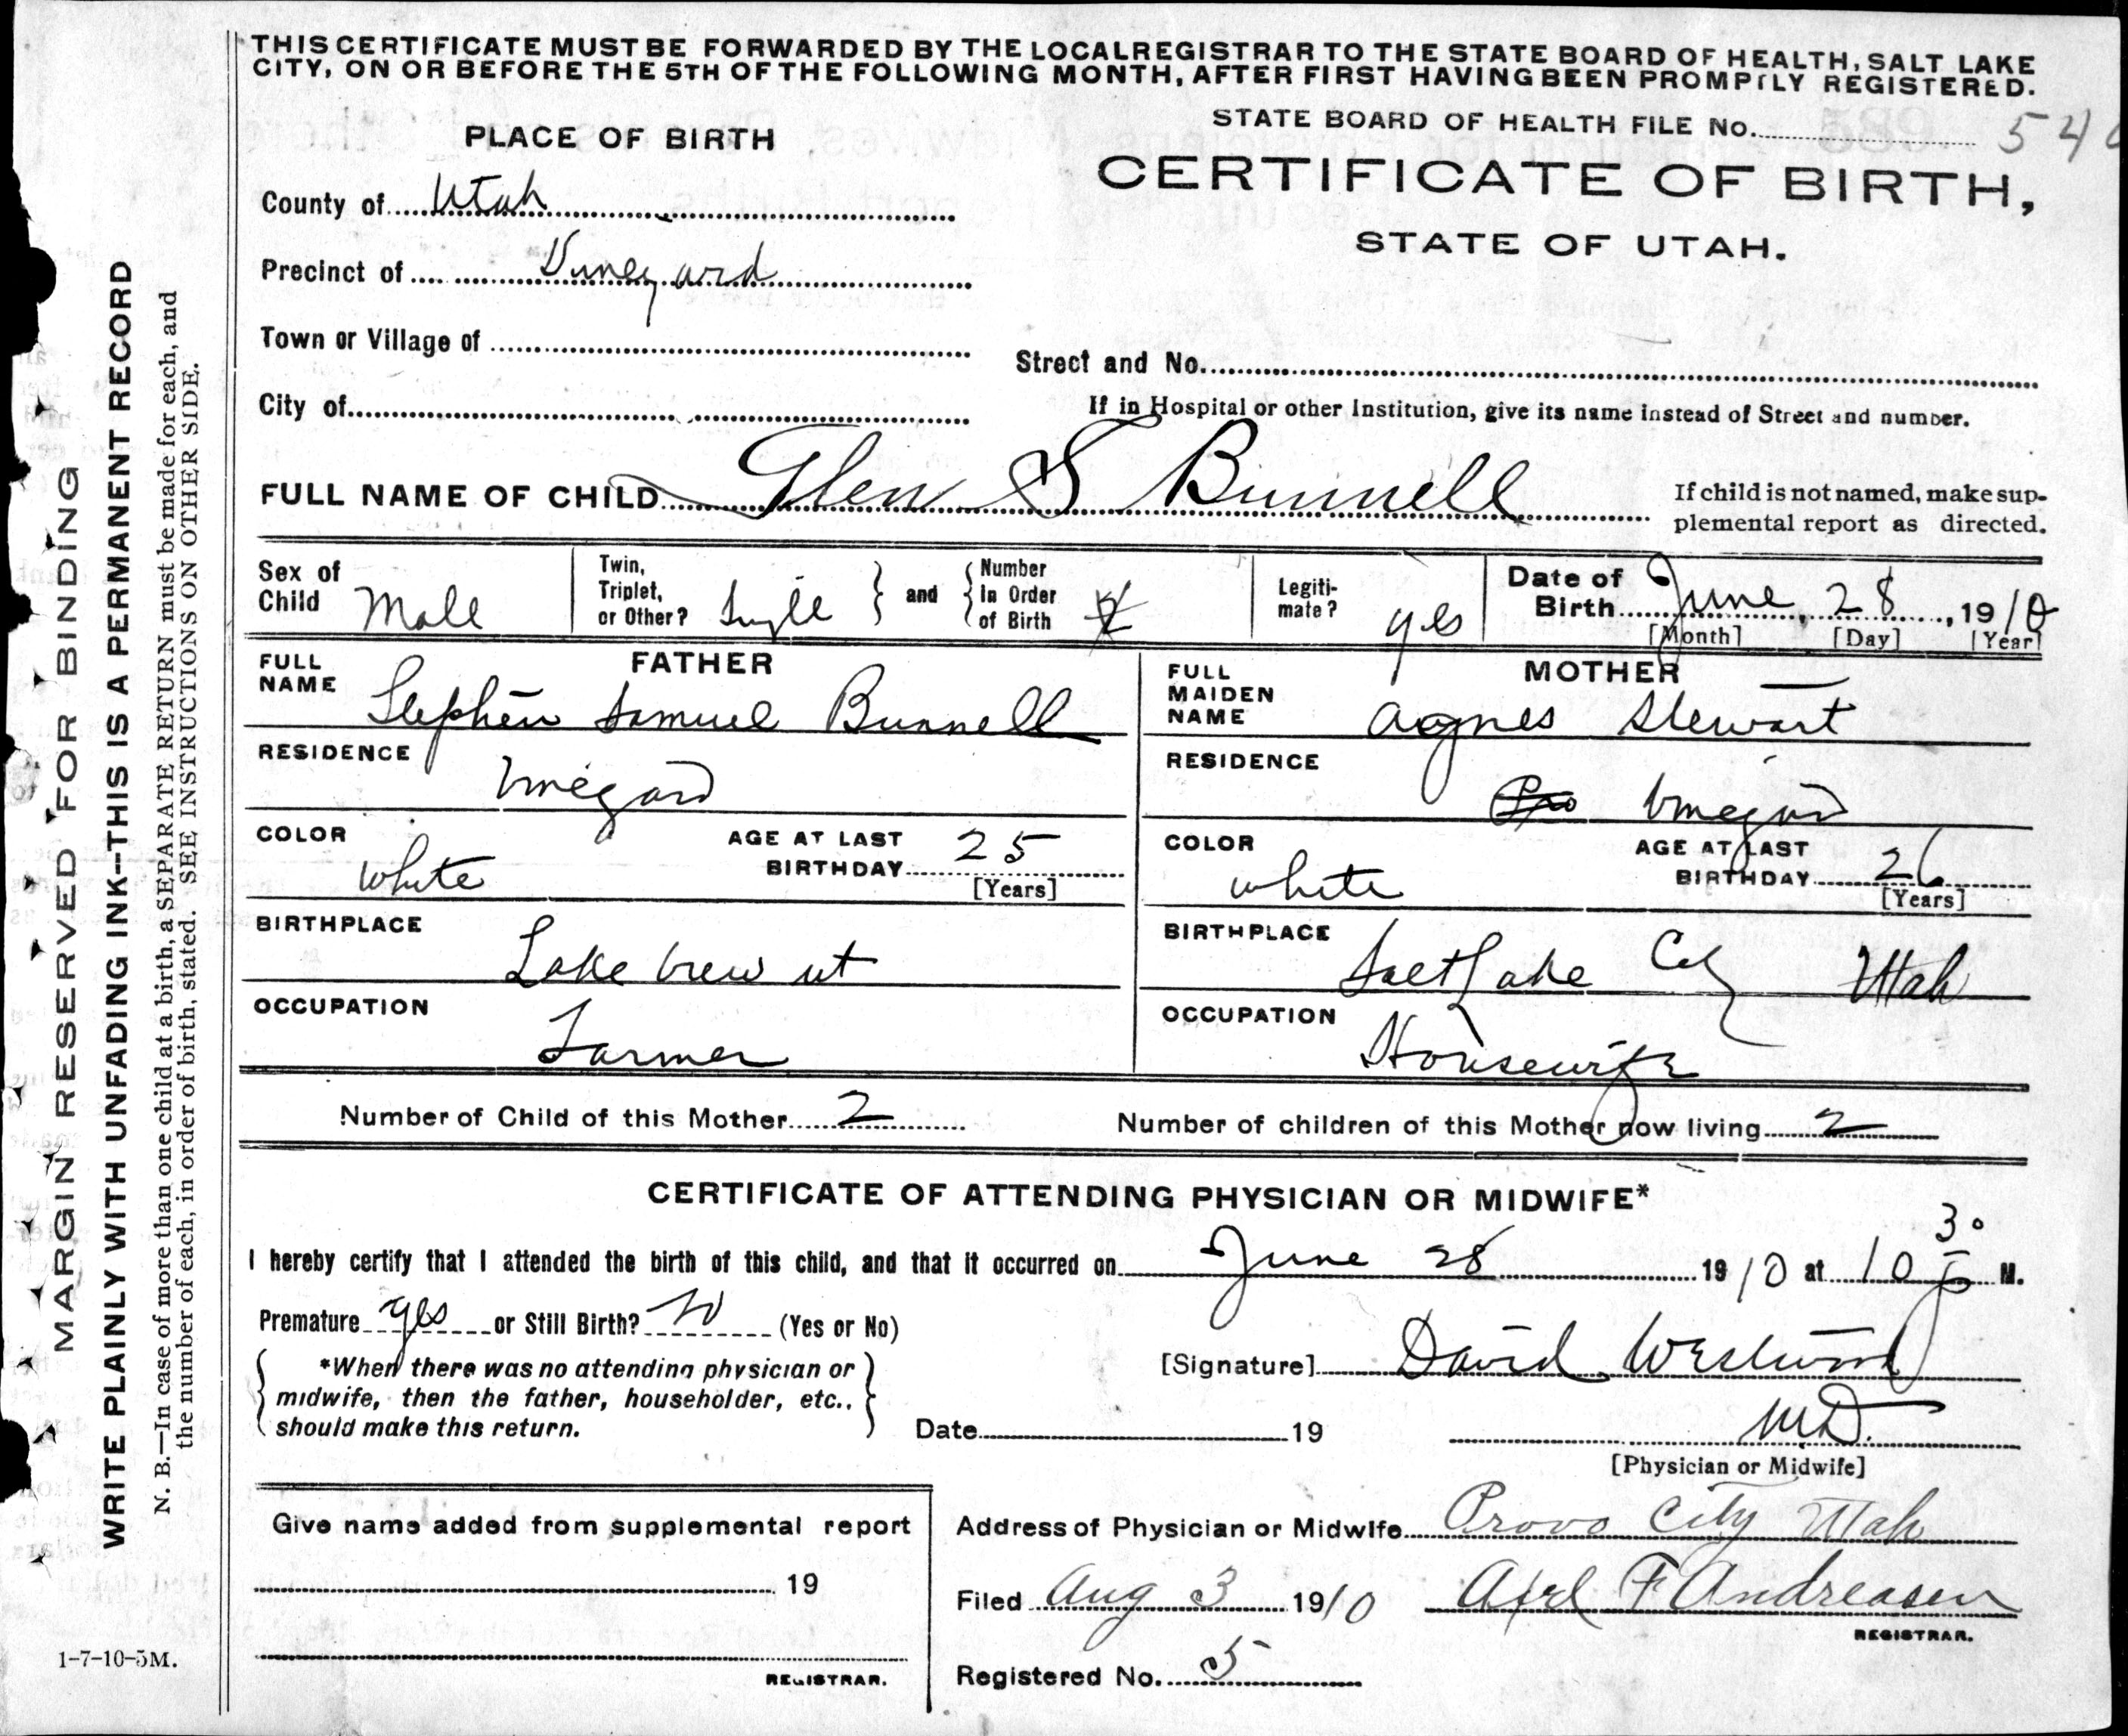 THIS CERTIFICATE MUST BE FORWARDED BY THE LOCAL REGISTRAR TO THE STATE BOARD OF HEALTH, SALT LAKE
CITY, ON OR BEFORE THE 5TH OF THE FOLLOWING MONTH, AFTER FIRST HAVING BEEN PROMPTLY REGISTERED.
STATE BOARD OF HEALTH FILE No.
PLACE OF BIRTH
CERTIFICATE OF BIRTH,
STATE OF UTAH.
County of Utah
Precinct of Vineyard
Town or Village of
Street and No.
City of
If in Hospital or other Institution, give its name instead of Street and number.
FULL NAME OF CHILD Glen S Bunnell
If child is not named, make sup-
plemental report as directed.
Sex of Child Male
Twin, Triplet, or Other? Single
and Number In Order of Birth
Legiti-mate? yes
Date of Birth June 28, 1910
[Month] [Day] [Year]
FATHER
FULL NAME Stephen Samuel Bunnell
RESIDENCE Vineyard
COLOR white
AGE AT LAST BIRTHDAY 25
[Years]
BIRTHPLACE Lake view ut
OCCUPATION Farmer
MOTHER
FULL MAIDEN NAME Agnes Stewart
RESIDENCE Vineyard
COLOR white
AGE AT LAST BIRTHDAY 26
[Years]
BIRTHPLACE Salt Lake City Utah
OCCUPATION Housewife
Number of Child of this Mother 2
Number of children of this Mother now living 2
CERTIFICATE OF ATTENDING PHYSICIAN OR MIDWIFE*
I hereby certify that I attended the birth of this child, and that it occurred on June 28 1910 at 10 30 P M.
Premature yes or Still Birth? no (Yes or No)
*When there was no attending physician or
midwife, then the father, householder, etc.,
should make this return.
[Signature] David Westwood
Date 19
MD.
[Physician or Midwife]
Give name added from supplemental report
19
REGISTRAR.
Address of Physician or Midwife Provo City Utah
Filed Aug 3 1910 Axel F Andreasen
REGISTRAR.
Registered No. 5
MARGIN RESERVED FOR BINDING
WRITE PLAINLY WITH UNFADING INK--THIS IS A PERMANENT RECORD
N. B.—In case of more than one child at a birth, a SEPARATE RETURN must be made for each, and
the number of each, in order of birth, stated. SEE INSTRUCTIONS ON OTHER SIDE.
1-7-10-5M.